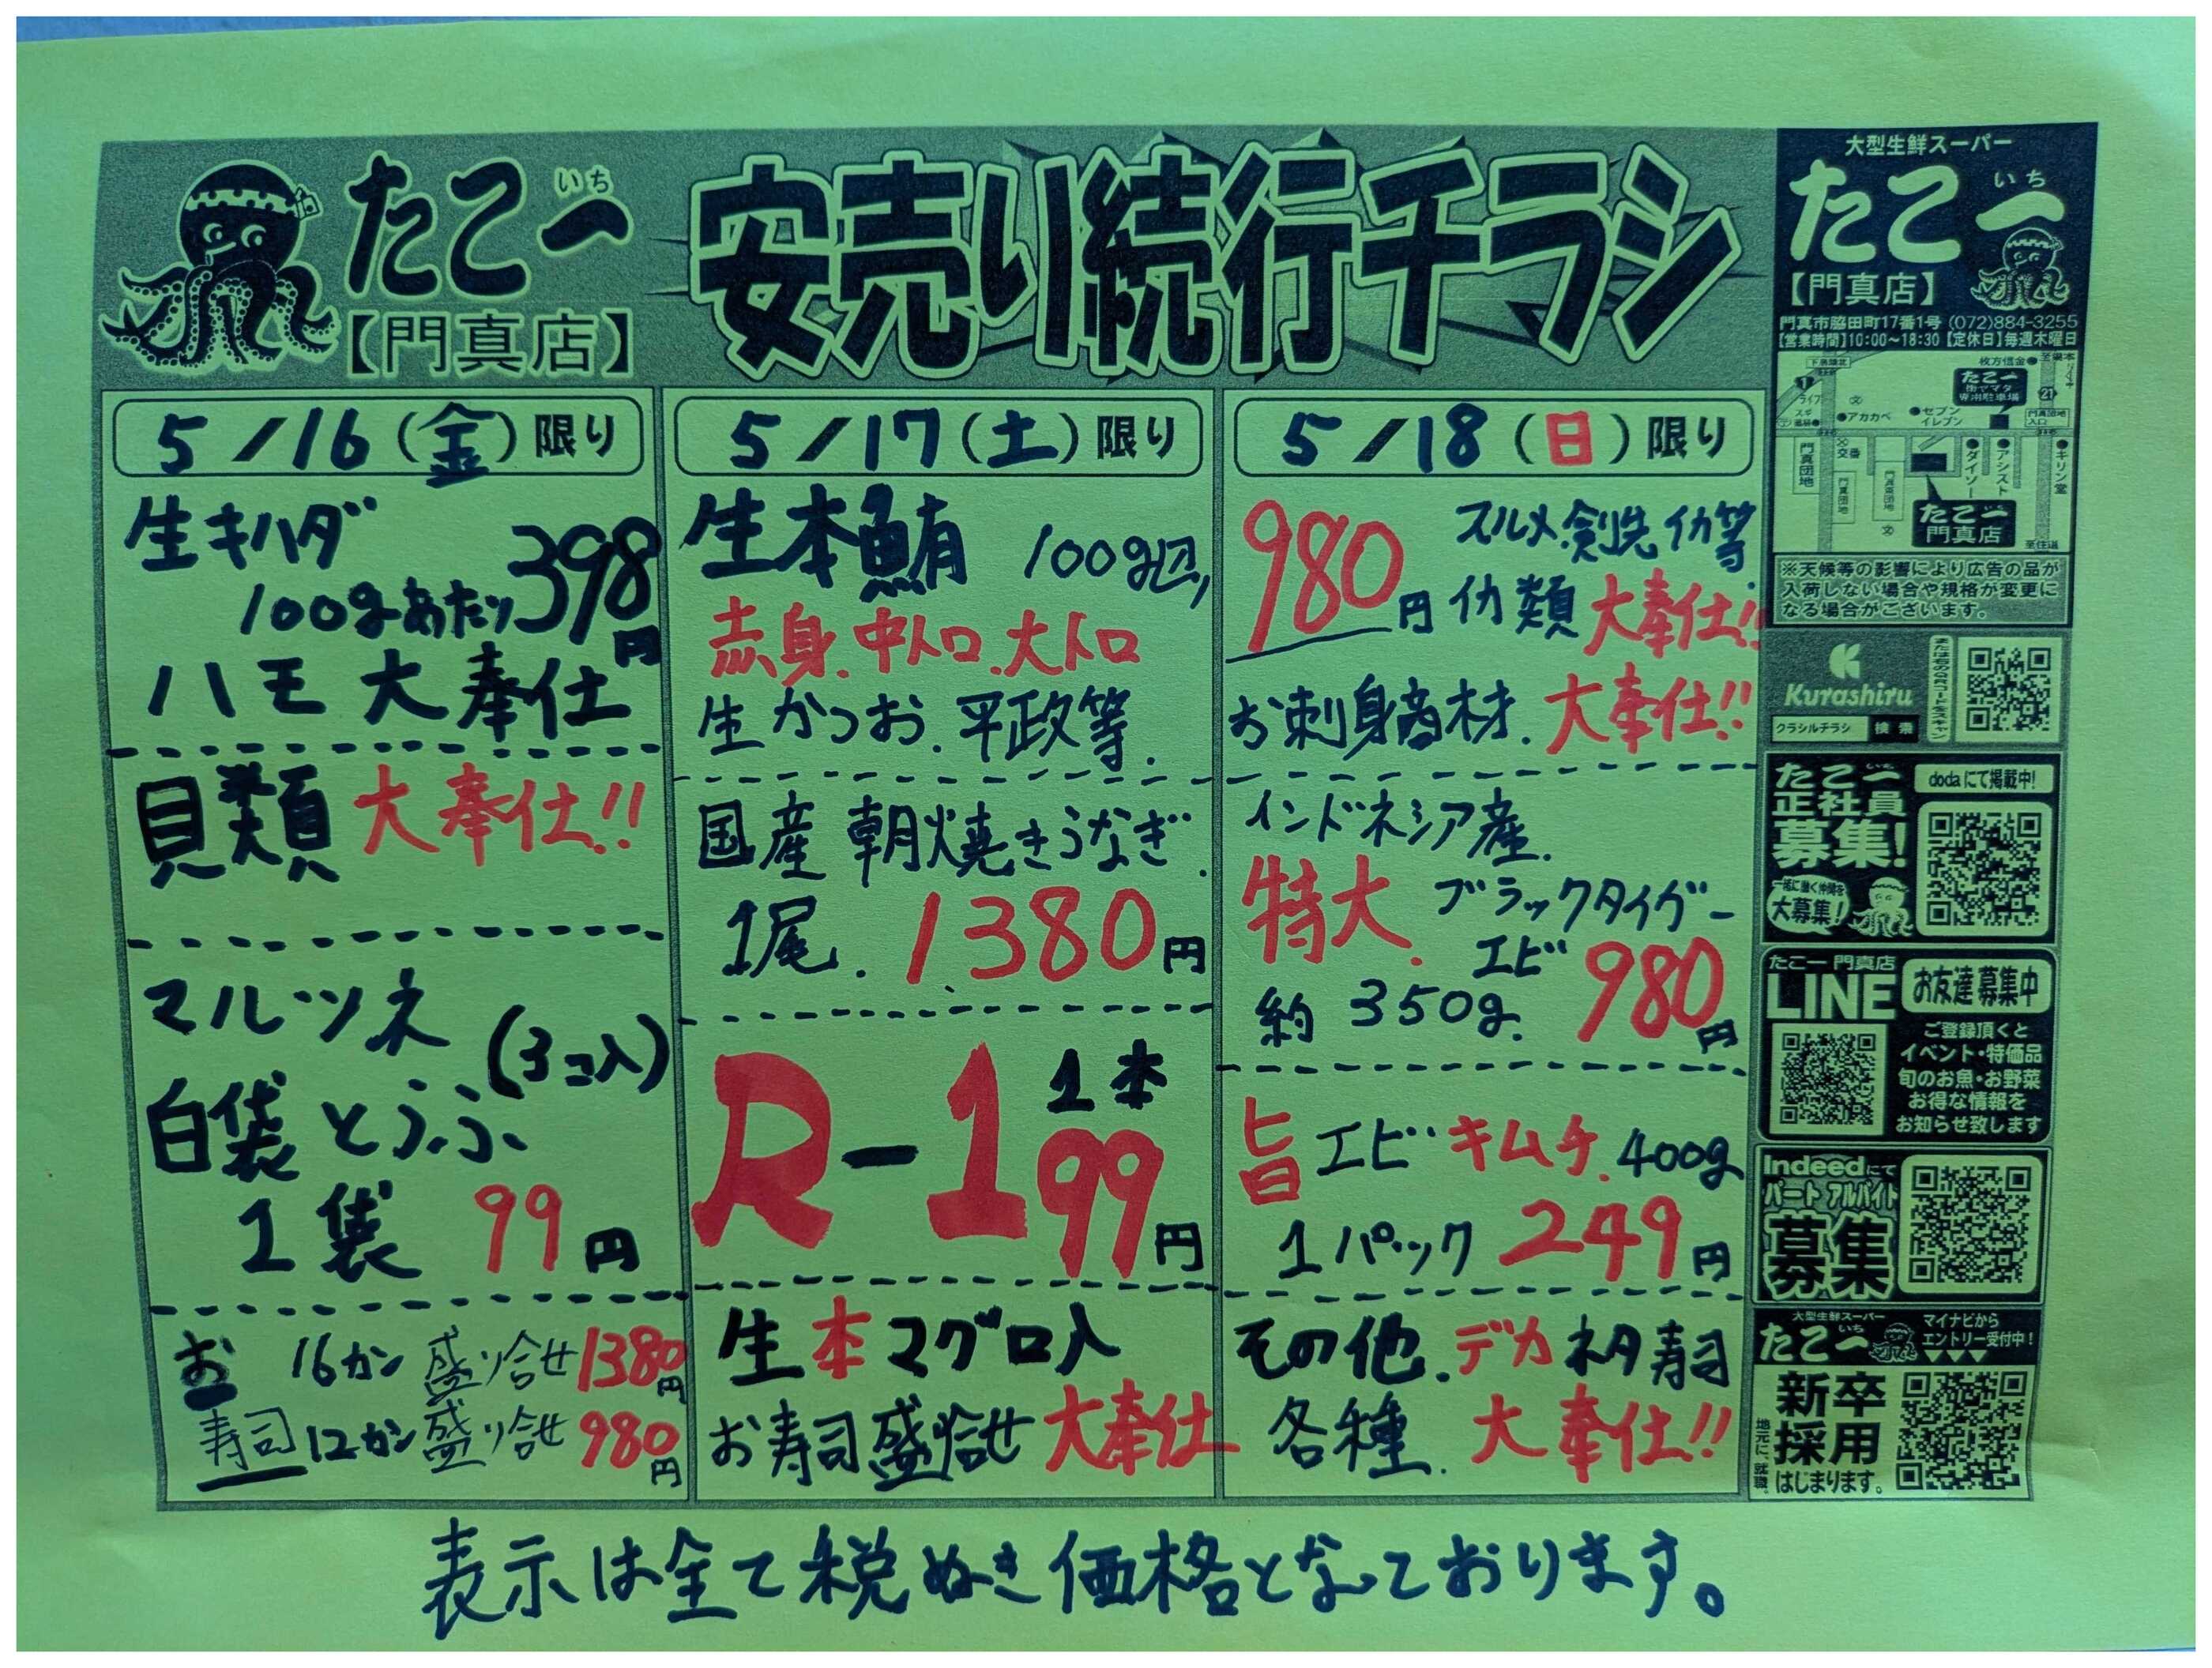 たこ一
いち
【門真店】
安売り続行チラシ
5/16(金)限り
生キハダ
100gあたり398円
ハモ大奉仕
貝類大奉仕!!
マルツネ
(3コ入)
白袋とうふ
1袋 99円
お寿司
16カン盛り合せ1380円
12カン盛り合せ980円
5/17(土)限り
生本鮪 100g辺り
赤身.中トロ.大トロ
生かつお.平政等.
国産 朝焼きうなぎ.
1尾. 1380円
R-1 1本
99円
生本マグロ入
お寿司盛り合せ大奉仕
5/18(日)限り
980円
スルメ.剣先イカ等.
イカ類大奉仕!!
お刺身商材.大奉仕!!
インドネシア産.
特大.ブラックタイガー
エビ 980円
約350g.
旨エビキムチ.400g
1パック 249円
その他.デカネタ寿司
各種.大奉仕!!
大型生鮮スーパー
たこ一
いち
【門真店】
門真市脇田町17番1号 (072)884-3255
【営業時間】10:00~18:30【定休日】毎週木曜日
枚方信金
たこ一
専用駐車場
アカカベ
セブンイレブン
門真団地
交番
ダイソー
アシスト
キリン堂
たこ一
門真店
至住道
※天候等の影響により広告の品が
入荷しない場合や規格が変更に
なる場合がございます。
Kurashiru
クラシルチラシ 検索
または右のQRコードをスキャン
たこ一
正社員
募集!
dodaにて掲載中!
一緒に働く仲間を
大募集!
たこ一 門真店
LINE
お友達募集中
ご登録頂くと
イベント・特価品
旬のお魚・お野菜
お得な情報を
お知らせ致します
Indeedにて
パート アルバイト
募集
大型生鮮スーパー
たこ一
いち
マイナビから
エントリー受付中!
新卒
採用
はじまります。
地元に、就職。
表示は全て税ぬき価格となっております。